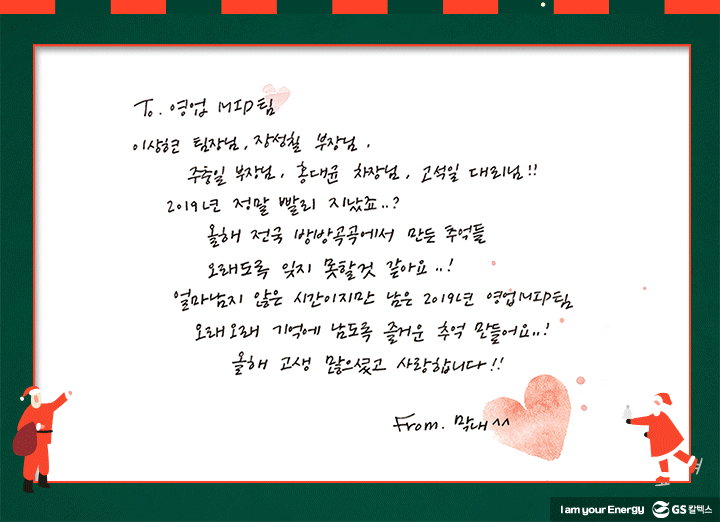 To. 영업 MID팀
이상현 팀장님, 장성칠 부장님,
주충일 부장님, 홍대균 차장님, 고석일 대리님!!
2019년 정말 빨리 지났죠..?
올해 전국 방방곡곡에서 만든 추억들
오래도록 잊지 못할것 같아요..!
얼마남지 않은 시간이지만 남은 2019년 영업MID팀
오래오래 기억에 남도록 즐거운 추억 만들어요..!
올해 고생 많으셨고 사랑합니다!!
From. 막내^^
I am your Energy GS칼텍스